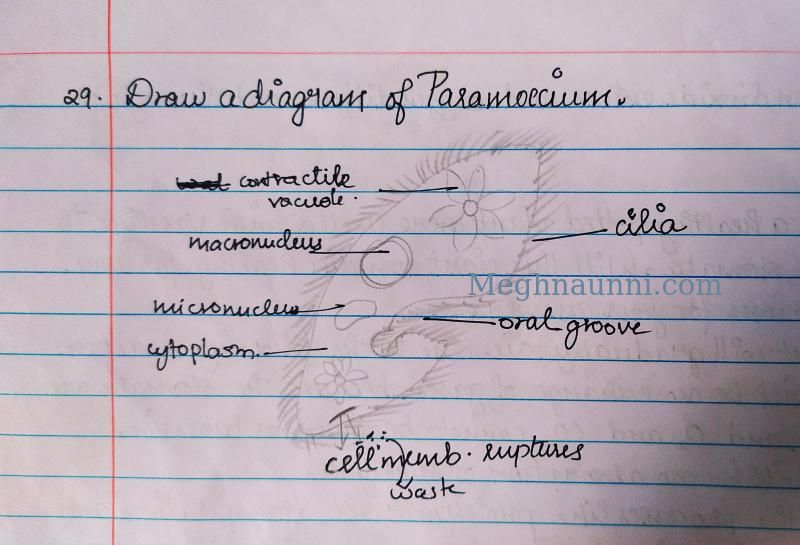 29. Draw a diagram of Paramoecium.
contractile
vacuole.
macronucleus
cilia
Meghnaunni.com
micronucleus
oral groove
cytoplasm.
cell memb. ruptures
waste